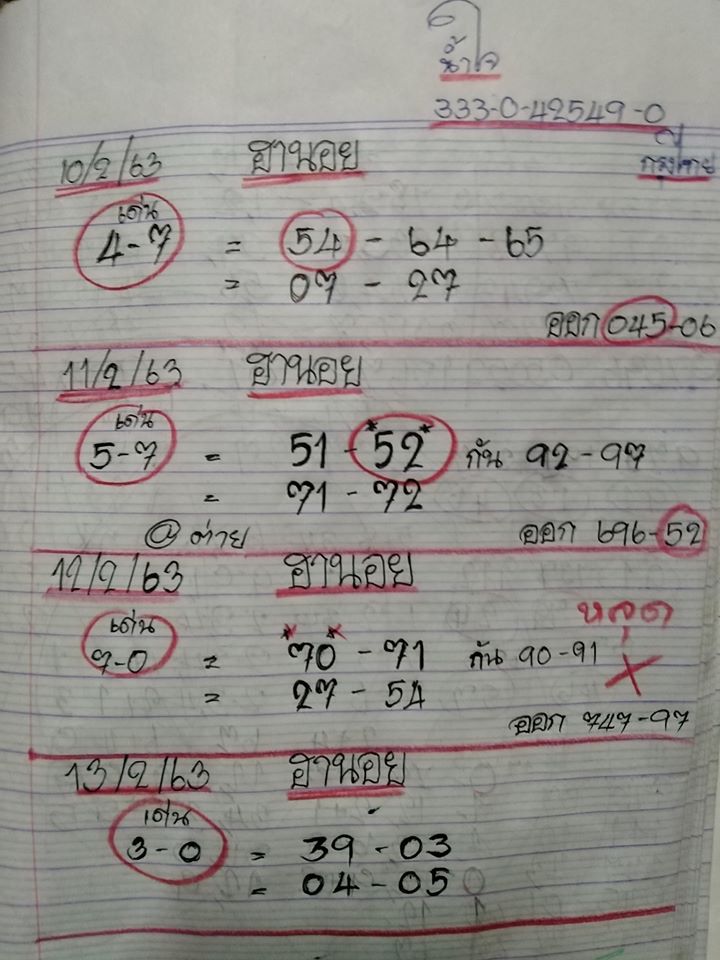 น้ำใจ
333-0-42549-0
กรุงไทย
10/2/63 ฮานอย
เด่น
4-7 = 54 - 64 - 65
= 07 - 27
ออก 045-06
11/2/63 ฮานอย
เด่น
5-7 = 51 - *52* กัน 92 - 97
= 71 - 72
@ ต่าย ออก 696-52
12/2/63 ฮานอย
เด่น หลุด
7-0 = *70* - 71 กัน 90-91 X
= 27 - 54
ออก 747-97
13/2/63 ฮานอย
เด่น
3-0 = 39 - 03
= 04 - 05